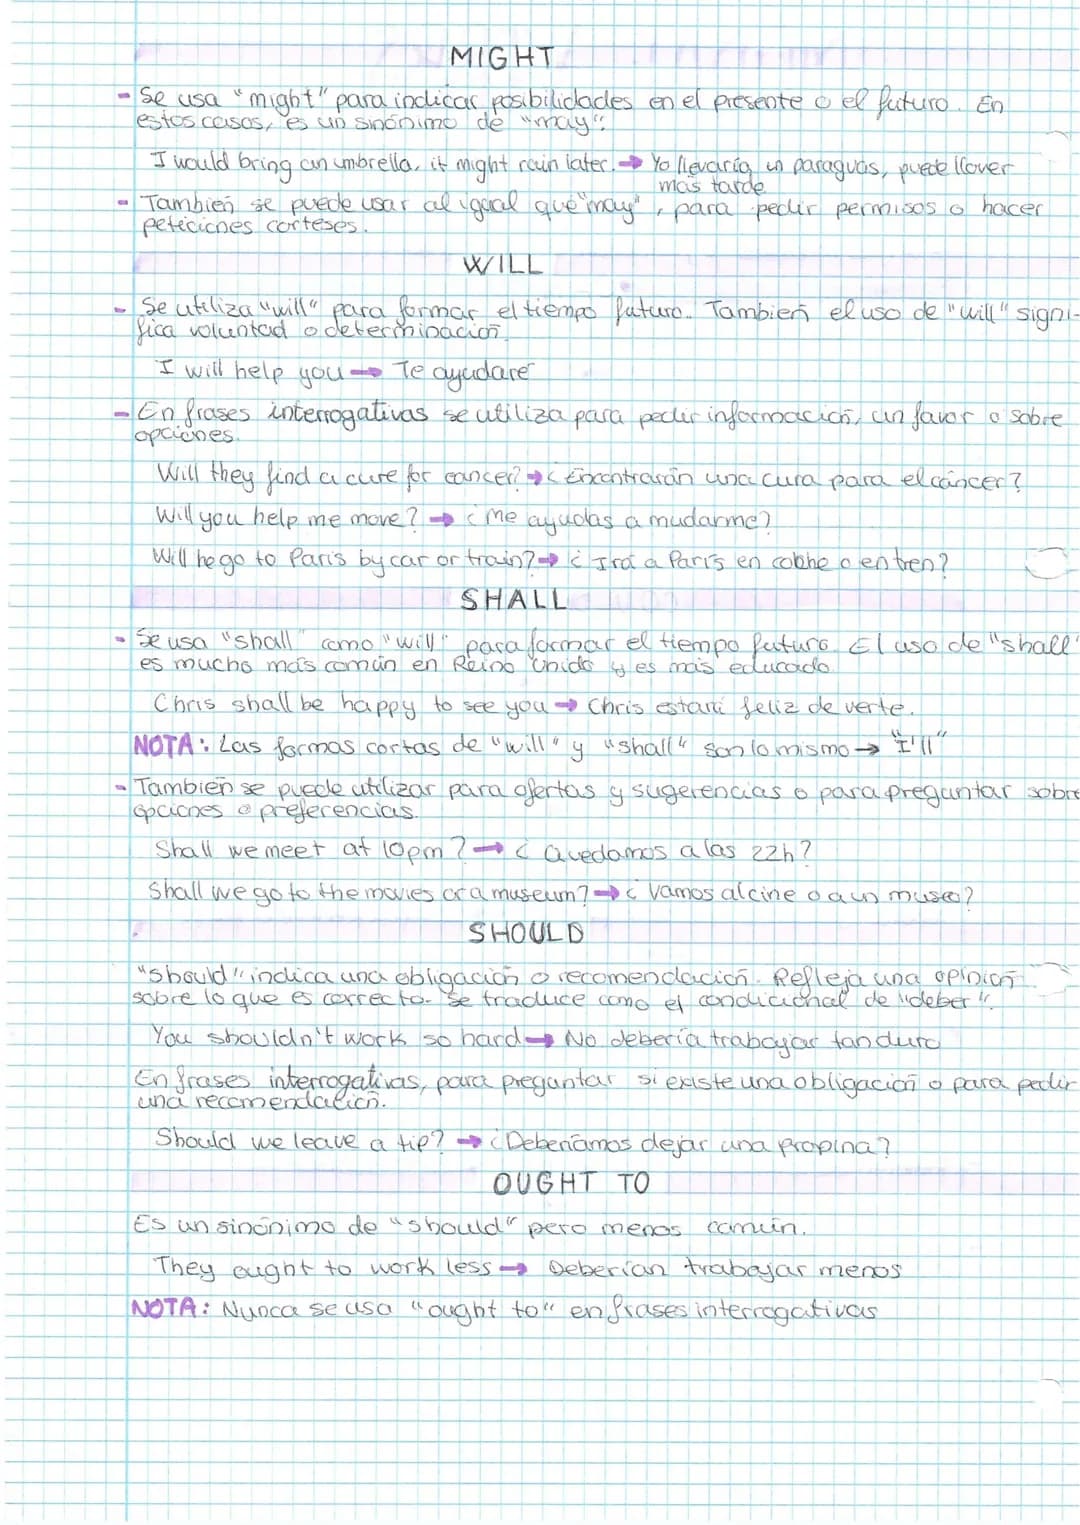 MIGHT
- Se usa "might" para indicar posibilidades en el presente o el futuro. En
estos casos, es un sinónimo de "may".
I would bring an umbrella, it might rain later. → Yo llevaría un paraguas, puede llover
más tarde
- También se puede usar al igual que "may", para pedir permisos o hacer
peticiones corteses.
WILL
- Se utiliza "will" para formar el tiempo futuro. También el uso de "will" signi-
fica voluntad o determinación.
I will help you → Te ayudaré
- En frases interrogativas se utiliza para pedir información, un favor o sobre
opciones.
Will they find a cure for cancer? → ¿Encontrarán una cura para el cáncer?
Will you help me move? → ¿Me ayudas a mudarme?
Will he go to Paris by car or train? → ¿Irá a París en cohhe o en tren?
SHALL
- Se usa "shall" como "will" para formar el tiempo futuro. El uso de "shall"
es mucho más común en Reino Unido y es más educado.
Chris shall be happy to see you → Chris estará feliz de verte.
NOTA: Las formas cortas de "will" y "shall" son lo mismo → "I'll"
- También se puede utilizar para ofertas y sugerencias o para preguntar sobre
opciones o preferencias.
Shall we meet at 10pm? → ¿Quedamos a las 22h?
Shall we go to the movies or a museum? → ¿Vamos al cine o a un museo?
SHOULD
"should" indica una obligación o recomendación. Refleja una opinión
sobre lo que es correcto. Se traduce como el condicional de "deber".
You shouldn't work so hard → No debería trabajar tan duro
En frases interrogativas, para preguntar si existe una obligación o para pedir
una recomendación.
Should we leave a tip? → ¿Deberíamos dejar una propina?
OUGHT TO
Es un sinónimo de "should" pero menos común.
They ought to work less → Deberían trabajar menos
NOTA: Nunca se usa "ought to" en frases interrogativas